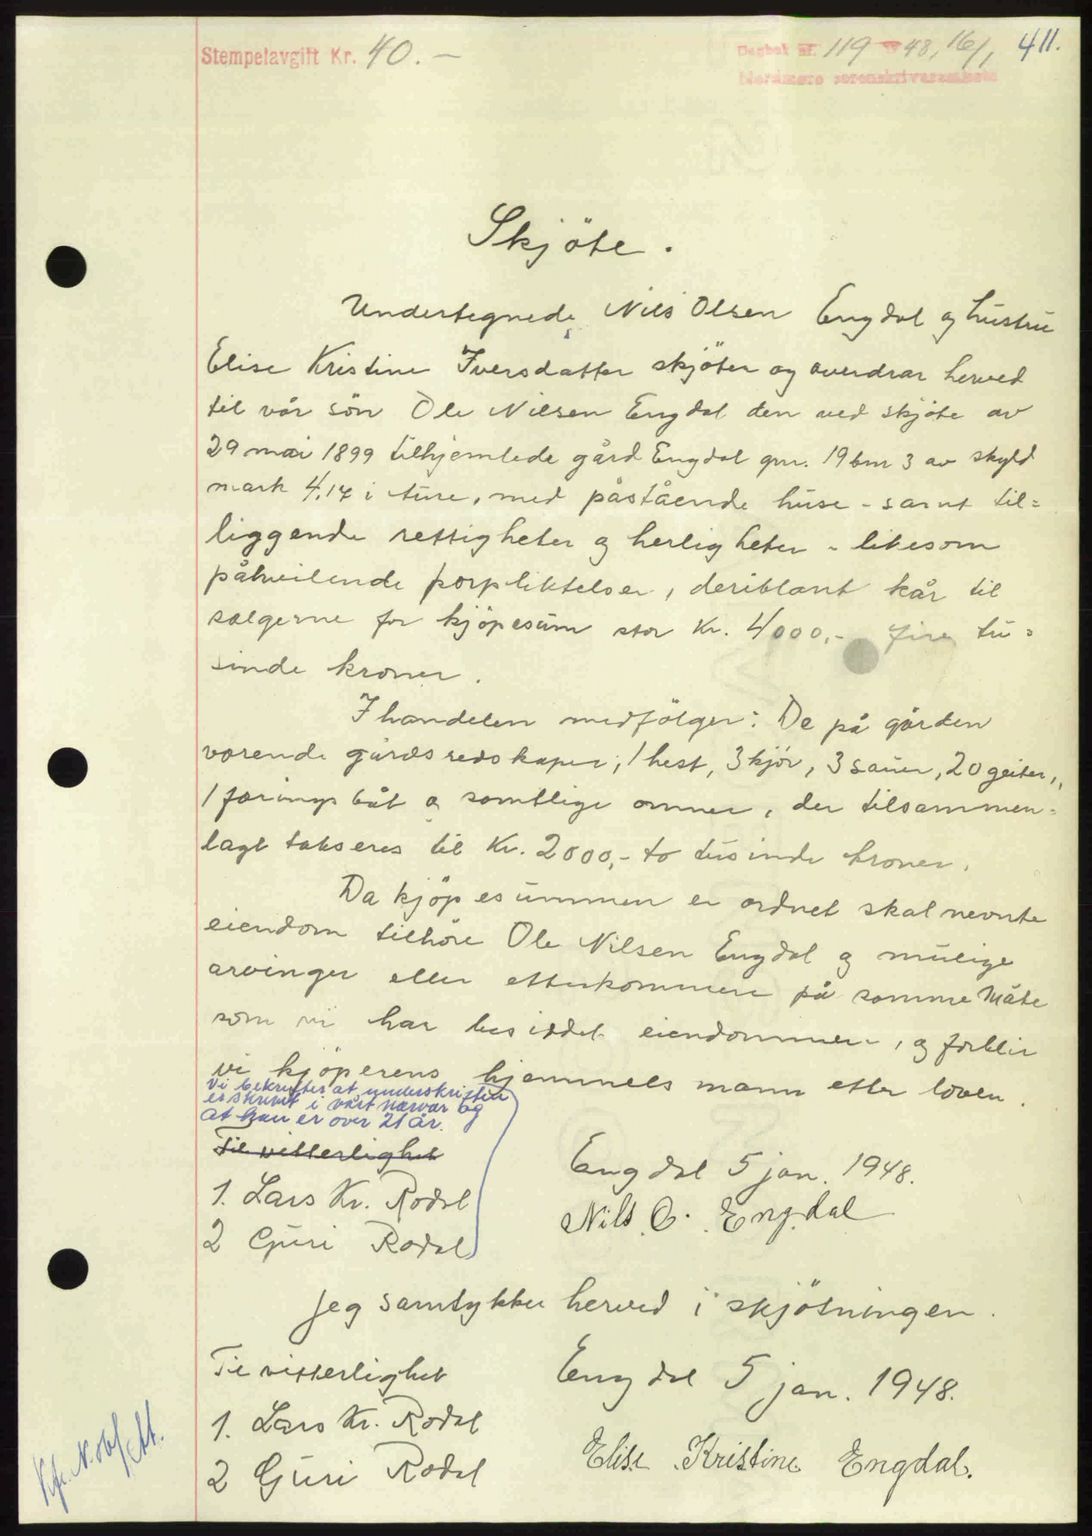 Stempelavgift Kr. 40.–
Dagbok nr. 119 48, 16/1 411.
Nordmøre sorenskriverembete
Skjöte.
Undertegnede Nils Olsen Engdal og hustru
Elise Kristine Iversdatter skjöter og overdrar herved
til vår sön Ole Nilsen Engdal den ved skjöte av
29 mai 1899 tilhjemlede gård Engdal gnr. 19 bnr 3 av skyld
mark 4,14 i Aure, med påstående huse - samt til=
liggende rettigheter og herligheter - likesom
påhvilende forpliktelser, deriblant kår til
sælgerne for kjöpesum stor Kr. 4000,- fire tu=
sinde kroner.
I handelen medfölger: De på gården
værende gårdsredskaper, 1 hest, 3 kjör, 3 sauer, 20 geiter,
1 færingsbåt og samtlige ovner, der tilsammen=
lagt takseres til Kr. 2000,- to tusinde kroner.
Da kjöpesummen er ordnet skal nevnte
eiendom tilhöre Ole Nilsen Engdal og mulige
arvinger eller etterkommere på samme måte
som vi har besiddet eiendommen, og forblir
vi kjöperens hjemmels mann etter loven.
Vi bekrefter at underskriften
er skrevet i vårt nærvær og
at han er over 21 år.
Til vitterlighet
Engdal 5 jan. 1948.
1. Lars Kr. Rodal
Nils O. Engdal
2 Guri Rodal
Jeg samtykker herved i skjötningen.
Til vitterlighet
Engdal 5 jan. 1948.
1. Lars Kr. Rodal
2 Guri Rodal
Elise Kristine Engdal.